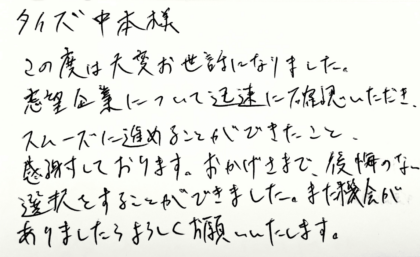 タイズ 中本様
この度は大変お世話になりました。
志望企業について迅速に確認いただき、
スムーズに進めることができたこと、
感謝しております。おかげさまで、後悔のない
選択をすることができました。また機会が
ありましたらよろしくお願いいたします。